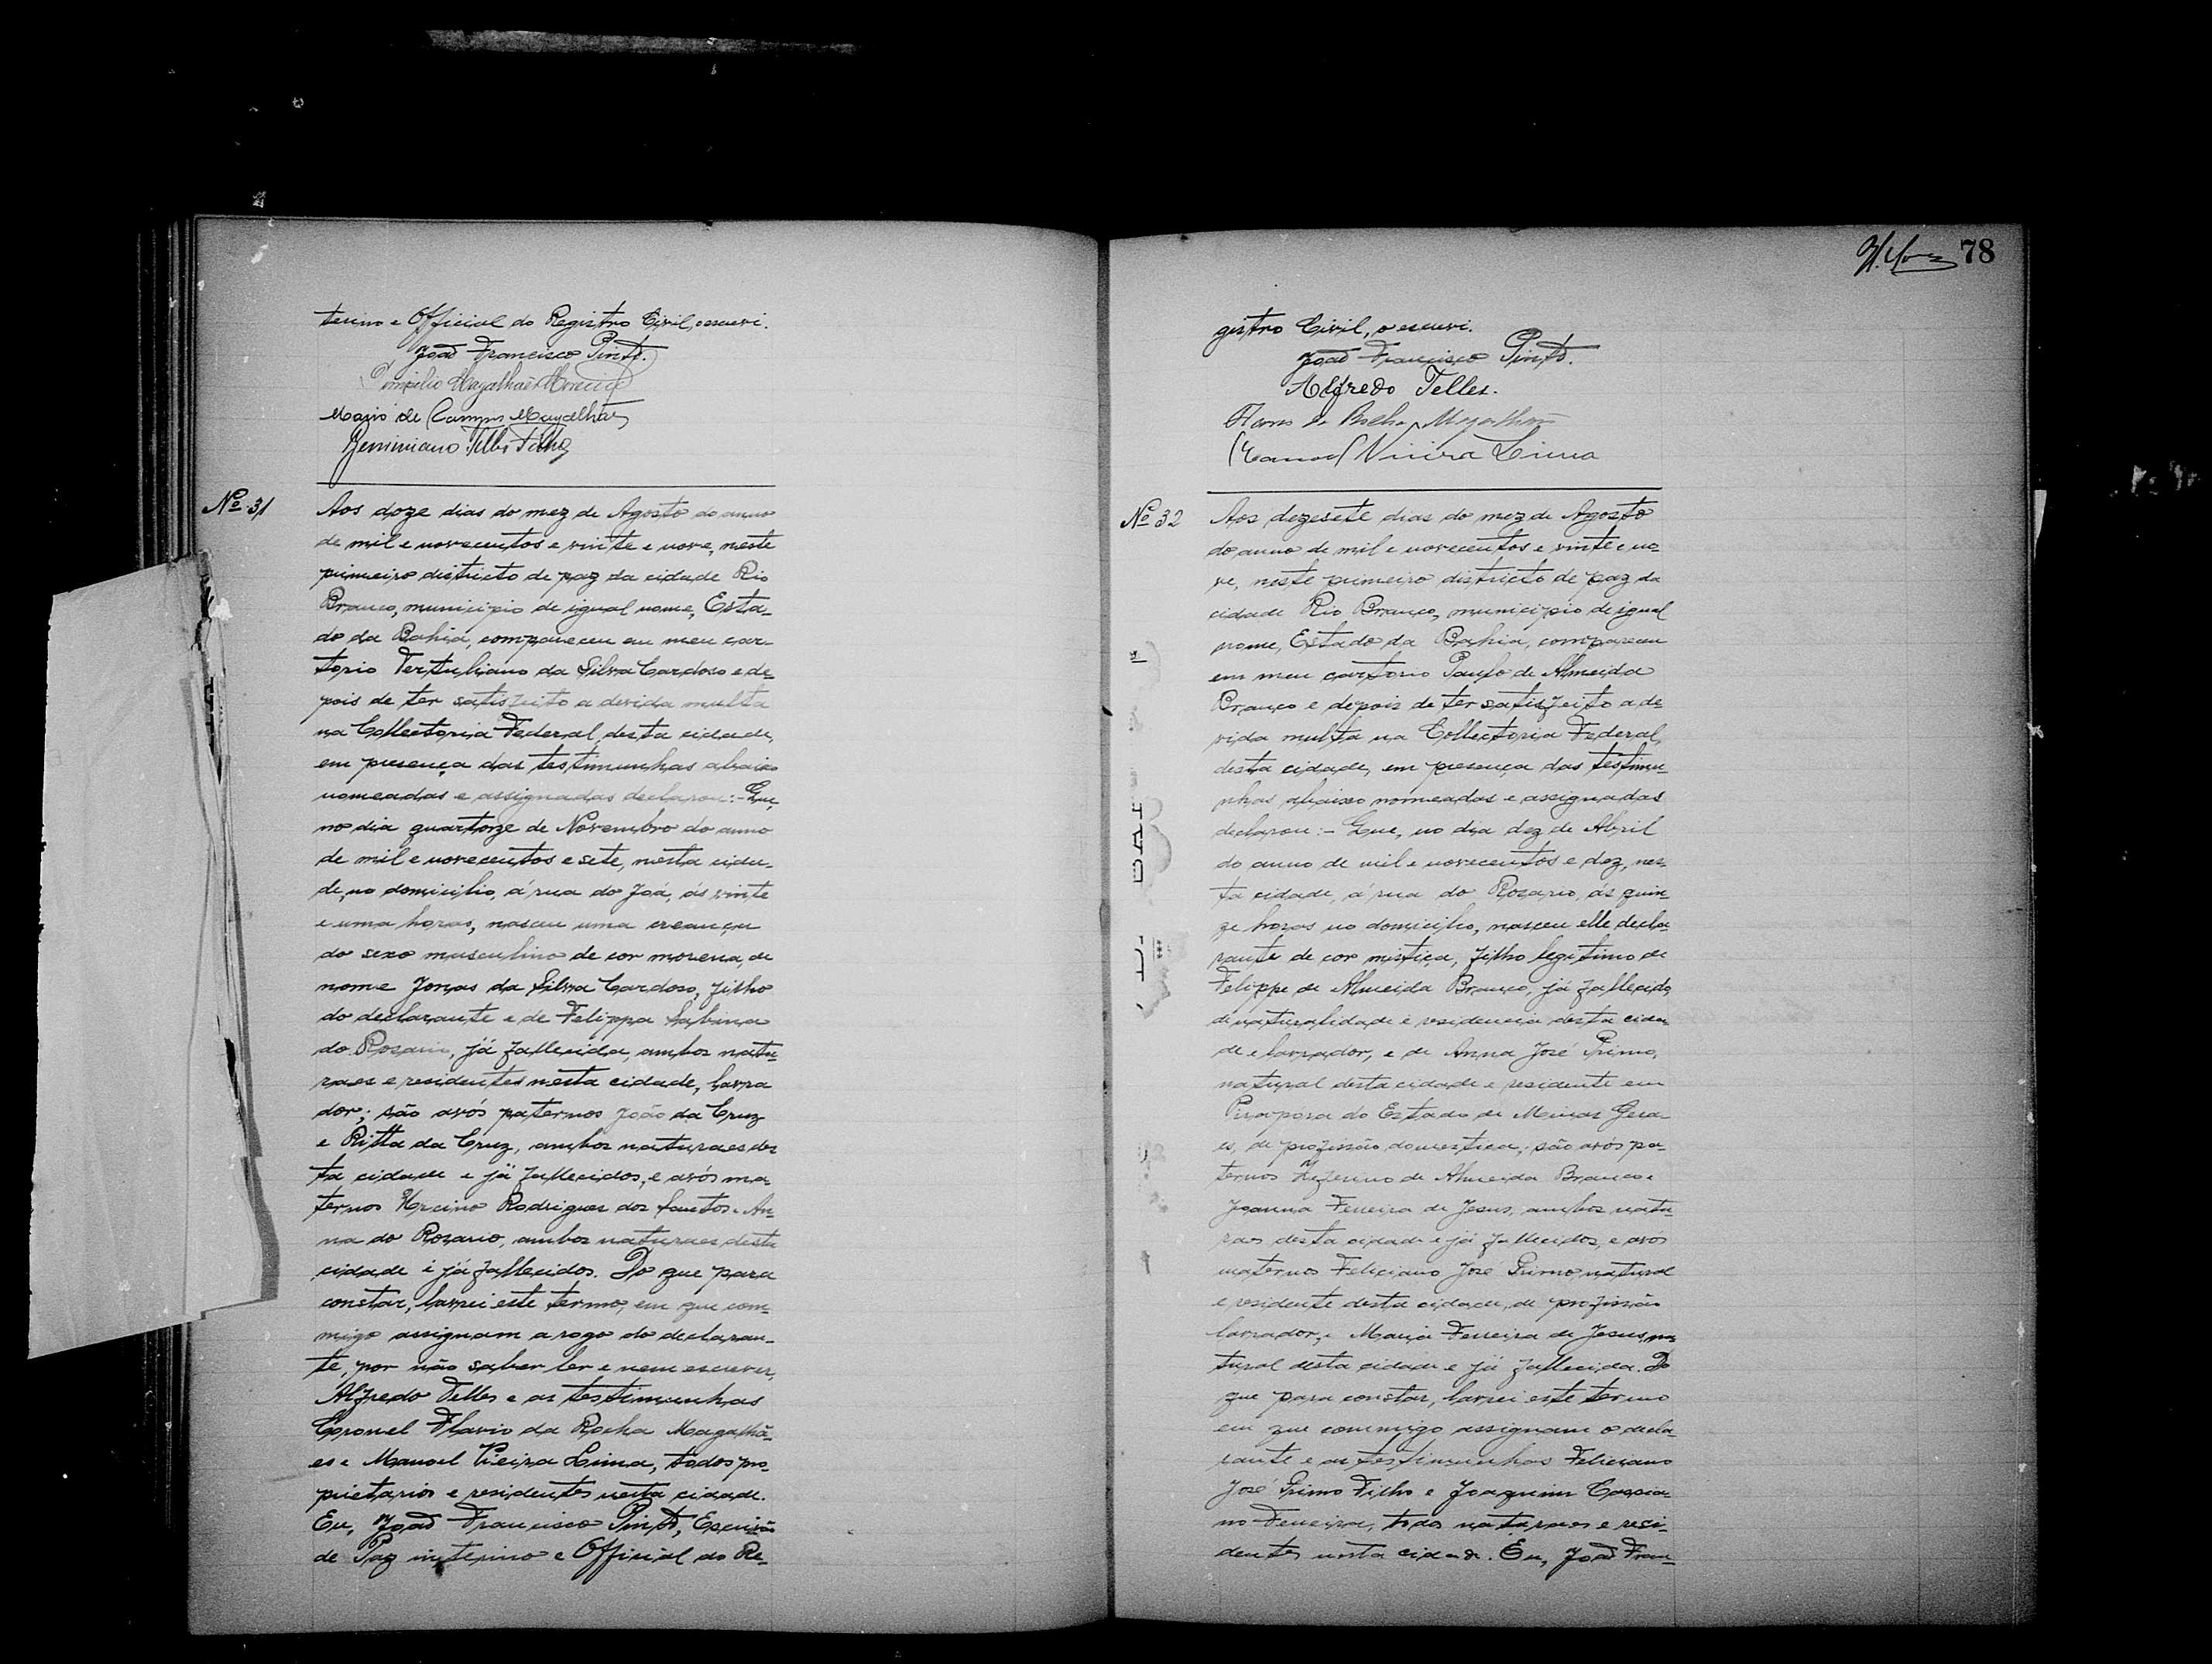 terino e Official do Registro Civil, o escrevi.
João Francisco Pinto.
Magalhães
Mario de Campos Magalhães
Geminiano Telles Filho
Nº 31
Aos doze dias do mez de Agosto do anno
de mil e novecentos e vinte e nove, neste
primeiro districto de paz da cidade Rio
Branco, municipio de igual nome, Esta-
do da Bahia, compareceu em meu car-
torio Tertuliano da Silva Cardoso e de-
pois de ter satisfeito a devida multa
na Collectoria Federal desta cidade,
em presença das testimunhas abaixo
nomeadas e assignadas declarou:- Que,
no dia quartorze de Novembro do anno
de mil e novecentos e sete, nesta cida-
de, no domicilio, á rua do Joá, ás vinte
e uma horas, nasceu uma creança
do sexo masculino de cor morena, de
nome Jonas da Silva Cardoso, filho
do declarante e de Felippa Sabina
do Rosario, já fallecida, ambos natu-
raes e residentes nesta cidade, lavra
dor; são avós paternos João da Cruz
e Ritta da Cruz, ambos naturaes des
ta cidade e já fallecidos, e avós ma-
ternos Rodrigues dos Santos e An-
na do Rosario, ambos naturaes desta
cidade e já fallecidos. Do que para
constar, lavrei este termo, em que com-
migo assignam a rogo do declaran-
te, por não saber ler e nem escrever,
Alfredo Telles e as testimunhas
Coronel Flavio da Rocha Magalhã-
es e Manoel Vieira Lima, todos pro-
prietarios e residentes nesta cidade.
Eu, João Francisco Pinto, Escrivão
de Paz interino e Official do Re-
78
gistro Civil, o escrevi.
João Francisco Pinto.
Alfredo Telles.
Flavio da Rocha Magalhães
Manoel Vieira Lima
Nº 32
Aos dezesete dias do mez de Agosto
do anno de mil e novecentos e vinte e no-
ve, neste primeiro districto de paz da
cidade Rio Branco, municipio de igual
nome, Estado da Bahia, compareceu
em meu cartorio Paulo de Almeida
Branco e depois de ter satisfeito a de
vida multa na Collectoria Federal,
desta cidade, em presença das testimu-
nhas abaixo nomeadas e assignadas
declarou:- Que, no dia dez de Abril
do anno de mil e novecentos e dez, nes-
ta cidade, á rua do Rosario, ás quin-
ze horas no domicilio, nasceu elle decla-
rante de cor mistiça, filho legitimo de
Felippe de Almeida Branco, já fallecido,
de naturalidade e residencia desta cida-
de e lavrador, e de Anna José Primo,
natural desta cidade e residente em
Pirapora do Estado de Minas Gera-
es, de profissão domestica; são avós pa-
ternos Zeferino de Almeida Branco e
Joanna Ferreira de Jesus, ambos natu-
raes desta cidade e já fallecidos, e avos
maternos Feliciano José Primo natural
e residente desta cidade, de profissão
lavrador, e Maria Ferreira de Jesus, na
tural desta cidade e já fallecida. Do
que para constar, lavrei este termo
em que commigo assignam o decla-
rante e as testimunhas Feliciano
José Primo Filho e Joaquim Cassia-
no Ferreira, todos naturaes e resi-
dentes nesta cidade. Eu, João Fran-